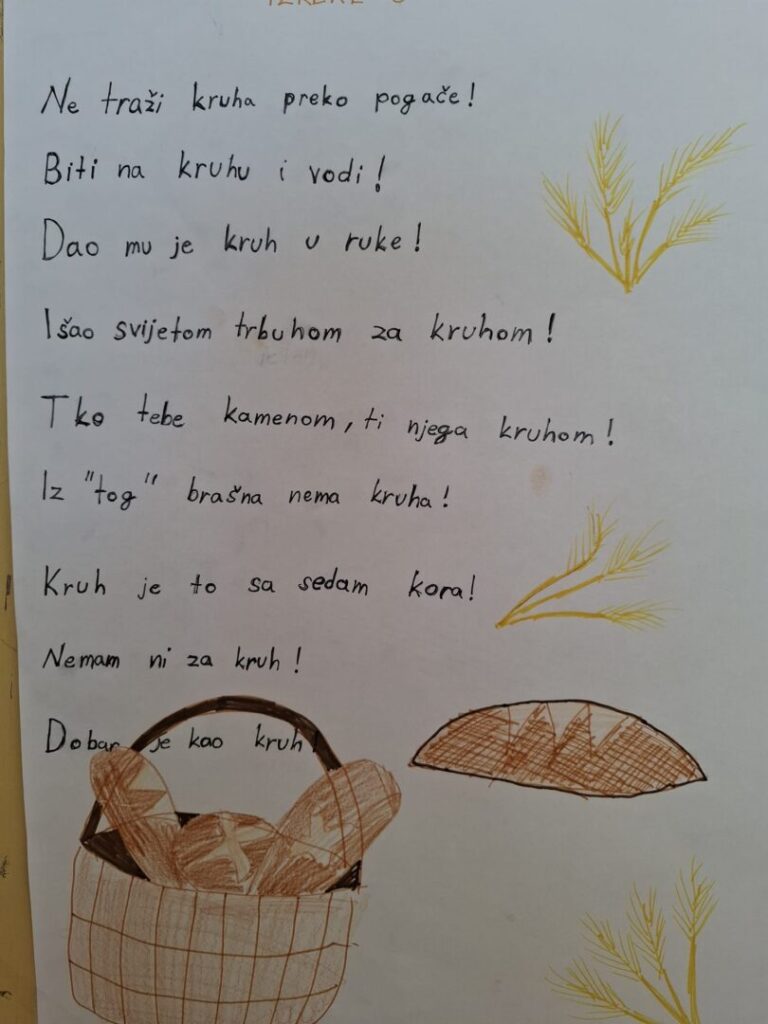 Ne traži kruha preko pogače!
Biti na kruhu i vodi!
Dao mu je kruh u ruke!
Išao svijetom trbuhom za kruhom!
Tko tebe kamenom, ti njega kruhom!
Iz "tog" brašna nema kruha!
Kruh je to sa sedam kora!
Nemam ni za kruh!
Dobar je kao kruh!